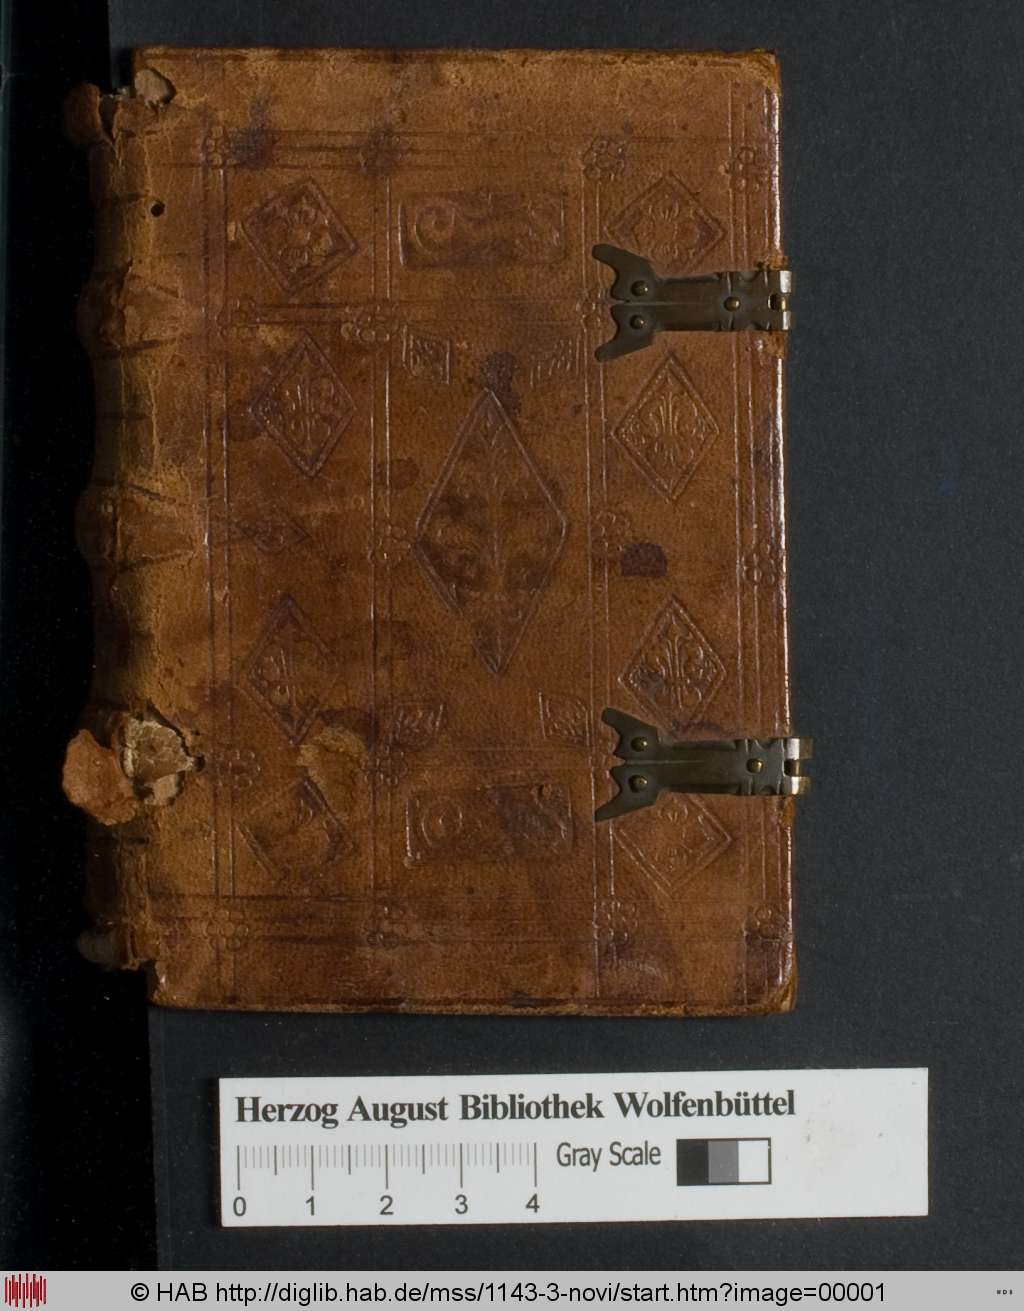 Herzog August Bibliothek Wolfenbüttel
Gray Scale
0 1 2 3 4
© HAB http://diglib.hab.de/mss/1143-3-novi/start.htm?image=00001